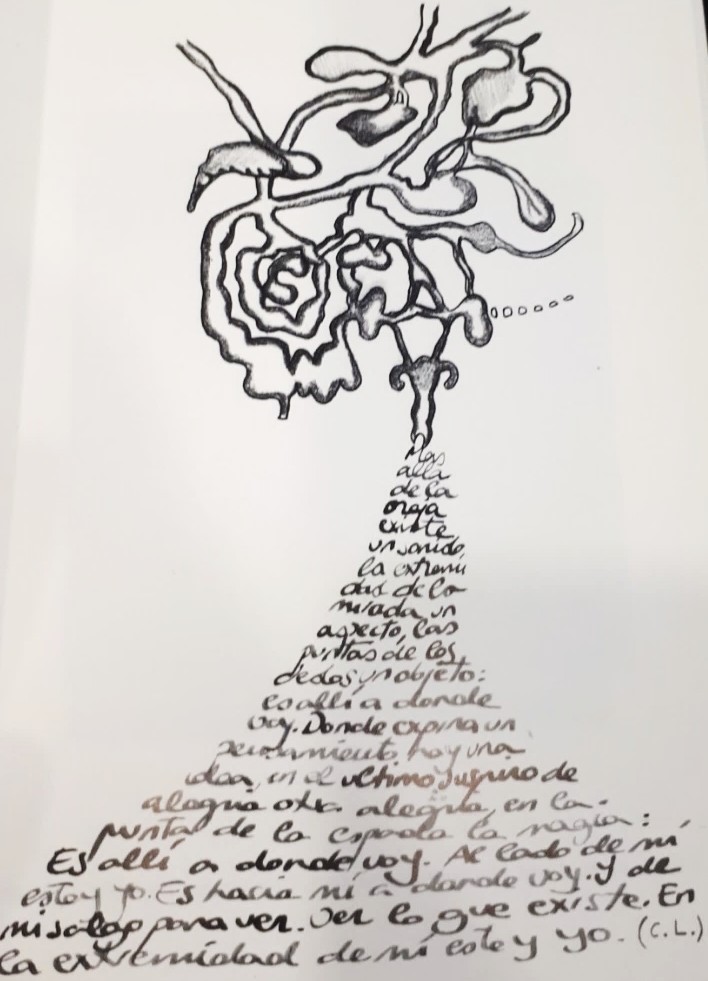 Mas
alla
de la
oreja
existe
un sonido,
la extremi
dad de la
mirada un
aspecto, las
puntas de los
dedos un objeto:
es allí a donde
voy. Donde expira un
pensamiento hay una
idea, en el ultimo suspiro de
alegria otra alegria, en la
punta de la espada la magia:
Es allí a donde voy. Al lado de mí
estoy yo. Es hacia mí a donde voy. Y de
mi salgo para ver. Ver lo que existe. En
la extremidad de mí estoy yo. (C.L.)